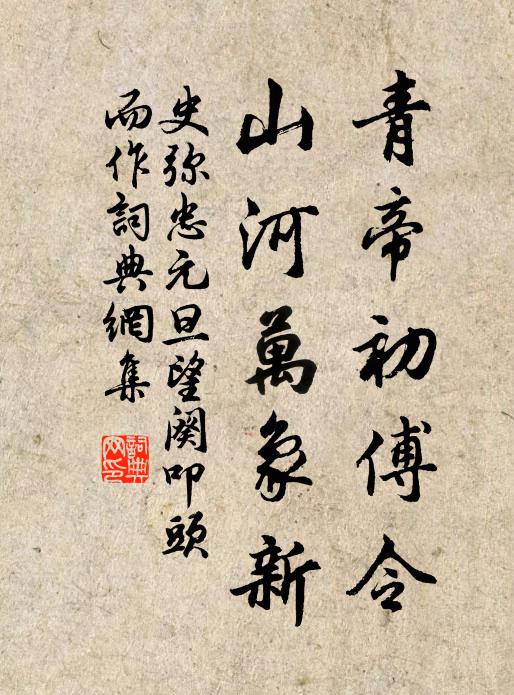 青帝初傅令
山河萬象新
史弥忠元旦望闕叩頭
而作詞典網集
詞典網印